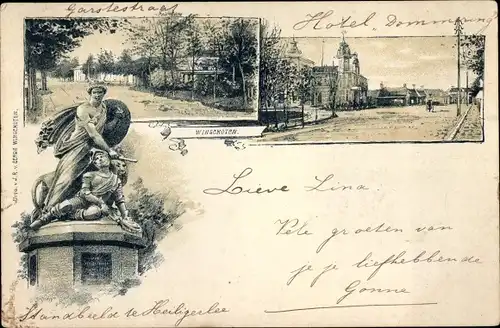 Garstestraat
Hotel Dommering
WINSCHOTEN.
Uitg. v. J. R. v. DERKS WINSCHOTEN.
Lieve Lina.
Vele groeten van
je je liefhebbende
Gonne
Standbeeld te Heiligerlee